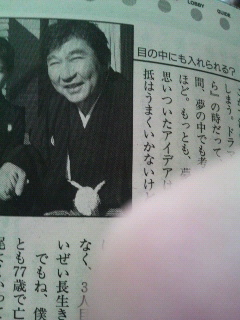 LOBBY
GUIDE
目の中にも入れられる？
しまう。ドラ
ら』の時だって、
間、夢の中でも考
ほど。もっとも、夢
思いついたアイデアは
抵はうまくいかないけど
なく、3人目
いぜい長生き
でもね、僕
とも77歳で亡